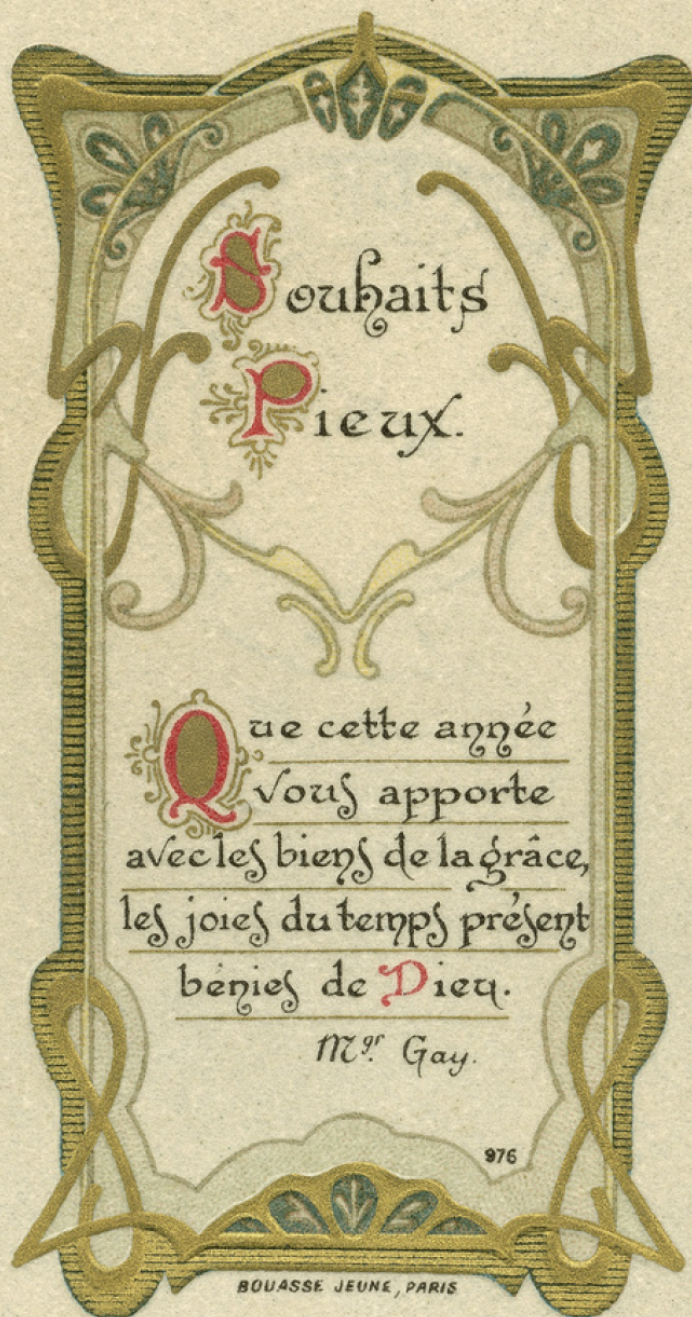 Souhaits
Pieux.
Que cette année
vous apporte
avec les biens de la grâce,
les joies du temps présent
bénies de Dieu.
Mgr. Gay.
976
BOUASSE JEUNE, PARIS